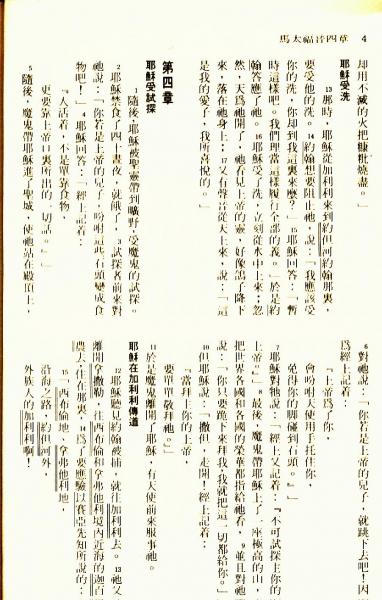 馬太福音四章 4
却用不滅的火把糠秕燒盡。」
耶穌受洗
13 那時，耶穌從加利利來到約但河約翰那裏，
要受他的洗。14 約翰想要阻止祂，說：「我應該受
你的洗，你却到我這裏來麼？」15 耶穌回答：「暫
時這樣吧。我們理當這樣履行全部的義。」於是約
翰答應了祂。16 耶穌受了洗，立刻從水中上來；忽
然，天爲祂開了，祂看見上帝的靈，好像鴿子降下
來，落在祂身上；17 又有聲音從天上來，說：「這
是我的愛子，我所喜悅的。」
第四章
耶穌受試探
1 隨後，耶穌被聖靈帶到曠野，受魔鬼的試探。
2 耶穌禁食了四十晝夜，就餓了，3 試探者前來對
祂說：「你若是上帝的兒子，吩咐這些石頭變成食
物吧！」4 耶穌回答：「經上記着：
『人活着，不是單靠食物，
更要靠上帝口裏所出的一切話。』」
5 隨後，魔鬼帶耶穌進了聖城，使祂站在殿頂上，
6 對祂說：「你若是上帝的兒子，就跳下去吧！因
爲經上記着：
『上帝爲了你，
會吩咐天使用手托住你，
免得你的脚碰到石頭。』」
7 耶穌對牠說：「經上又記着：『不可試探主你的
上帝。』」8 最後，魔鬼帶耶穌上了一座極高的山，
把世界各國和各國的榮華都指給祂看，9 並且對祂
說：「你只要跪下來拜我，我就把這一切都給你。」
10 但耶穌說：「撒但，走開！經上記着：
『當拜主你的上帝，
要單單敬拜祂。』」
11 於是魔鬼離開了耶穌，有天使前來服事祂。
耶穌在加利利傳道
12 耶穌聽見約翰被捕，就往加利利去。13 祂又
離開拿撒勒，往西布倫和拿弗他利境內近海的迦百
農去，住在那裏，14 爲了要應驗以賽亞先知所說的：
15 「西布倫地，拿弗他利地，
沿海之路，約但河外，
外族人的加利利啊！